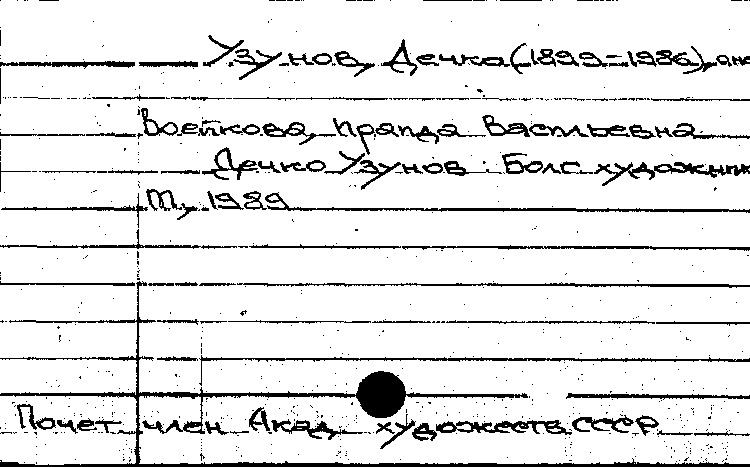 Узунов, Дечко (1899-1986), ака
Воейкова, Правда Васильевна
Дечко Узунов : Болг художник
М, 1989
Почет член Акад художеств СССР